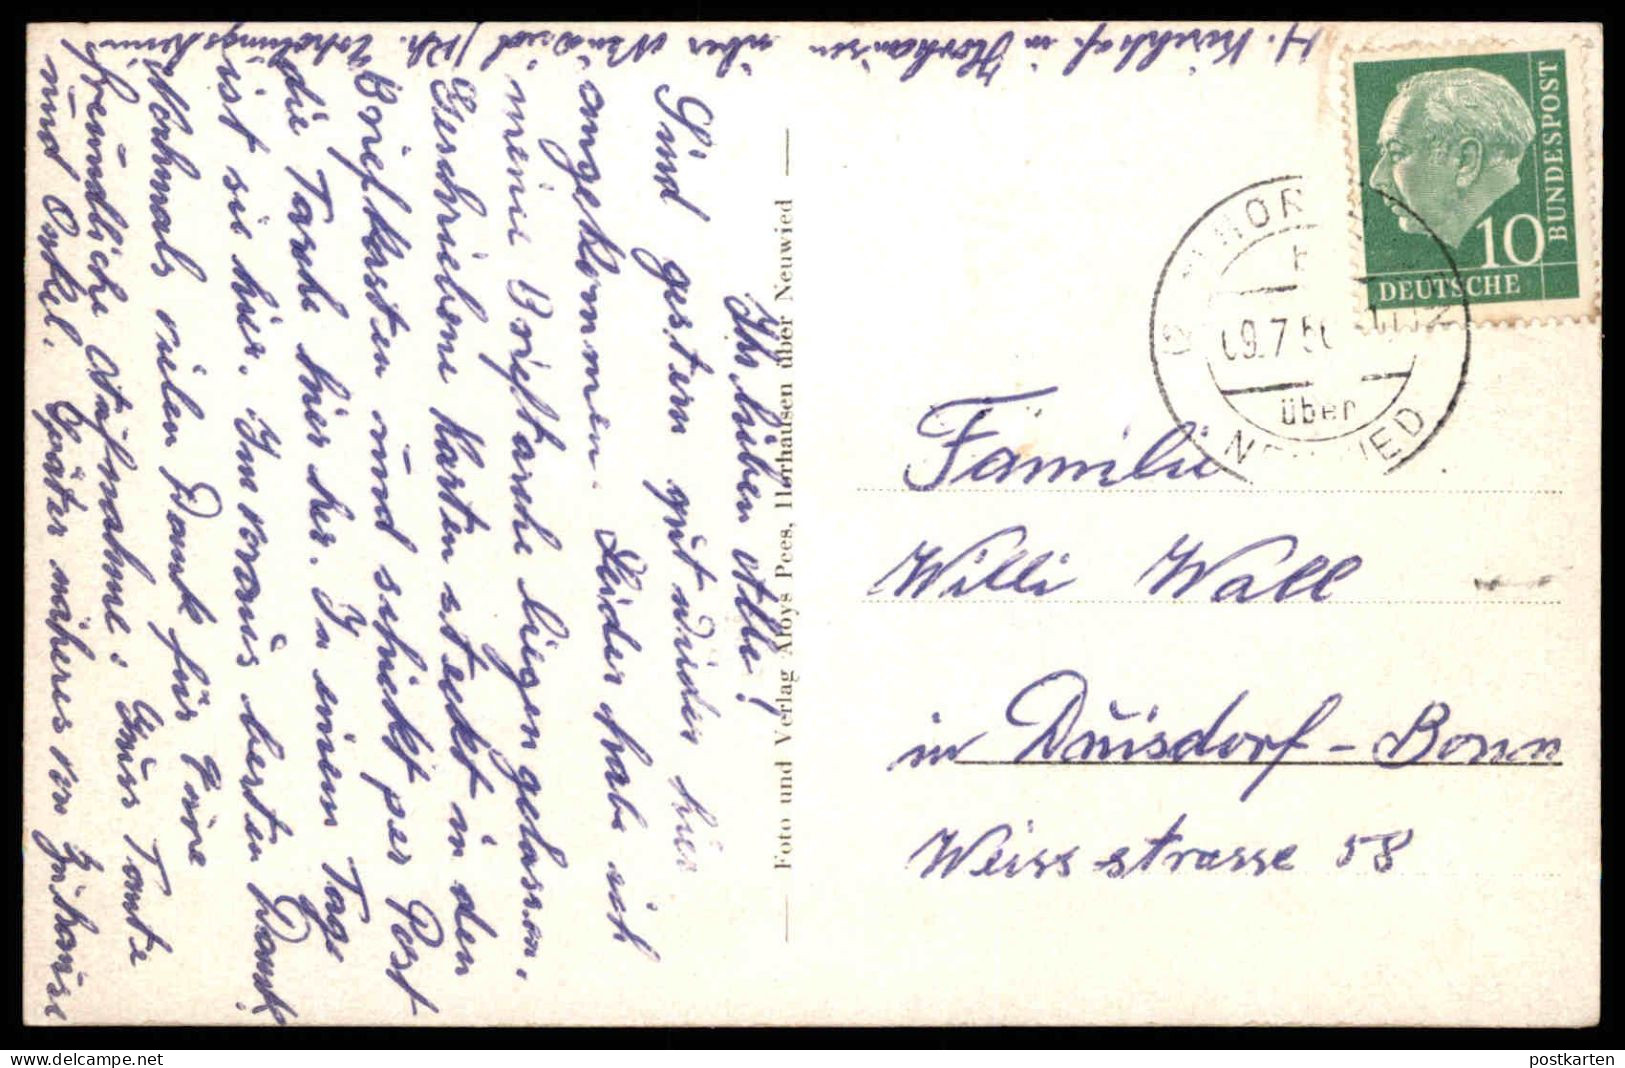 H. Kirchhof in Horhausen über Neuwied / Rh. Erholungsheim
Ihr lieben Alle!
Sind gestern gut wieder hier
angekommen. Leider habe ich
meine Brieftasche liegen gelassen,
Geschriebene Karten steckt in den
Briefkasten und schickt per Post
die Tasche hier her. In einem Tage
ist sie hier. Im voraus besten Dank!
Nochmals vielen Dank für Eure
freundliche Aufnahme. Eure Tante
und Onkel. Später näheres von Zuhause
Foto und Verlag Aloys Pees, Horhausen über Neuwied
10
BUNDESPOST
DEUTSCHE
09.7.56
über
Familie
Willi Wall
in Duisdorf - Bonn
Weiss strasse 58
postkarten